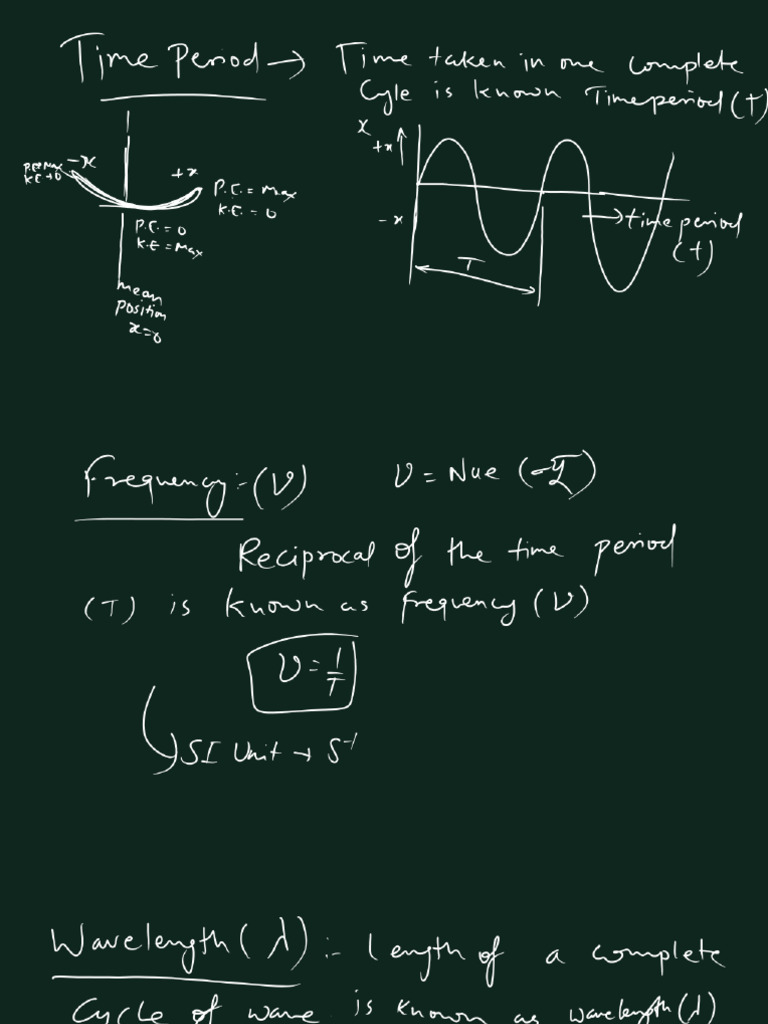 Time Period → Time taken in one complete
Cycle is known Timeperiod (t)
-x
+x
P.E = Max
K.E. → 0
P.E. = Max
K.E. = 0
P.E. = 0
K.E = Max
mean
position
x=0
x
+x
-x
→ time period
(t)
T
Frequency :- (ν) ν = Nue
Reciprocal of the time period
(T) is known as frequency (ν)
ν = 1/T
SI Unit → S⁻¹
Wavelength (λ) :- Length of a complete
Cycle of wave is known as wavelength (λ)